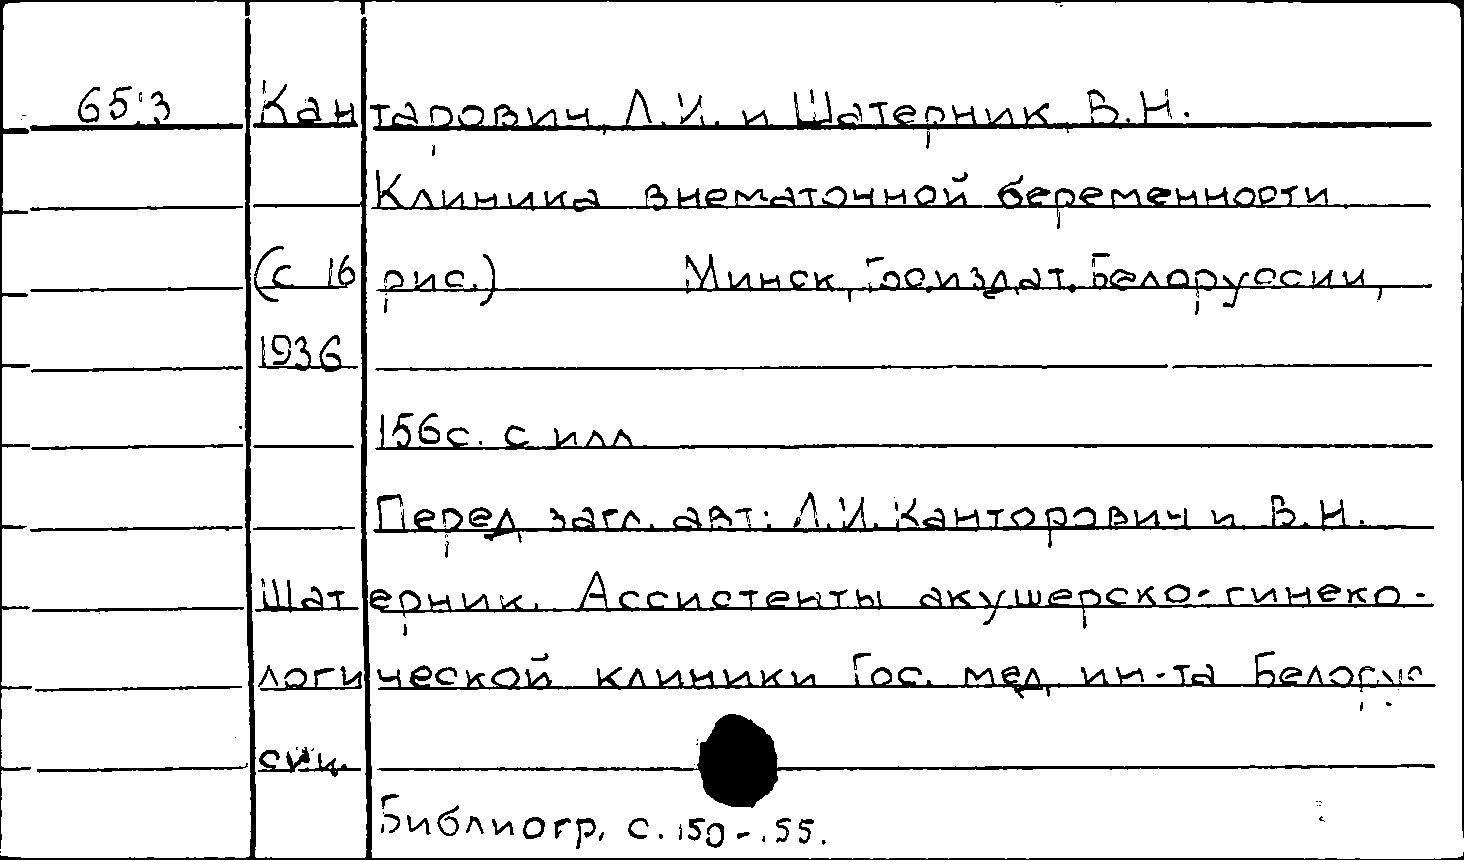 65:3 Кантарович, Л.И. и Шатерник, В.Н.
Клиника внематочной беременности
(с 16 рис.) Минск, Госиздат. Белоруссии,
1936
156с. с илл
Перед загл. авт: Л.И. Канторович и В.Н.
Шатерник. Ассистенты акушерско-гинеко-
логической клиники Гос. мед, ин-та Белорус
сии.
Библиогр. с. 150-155.